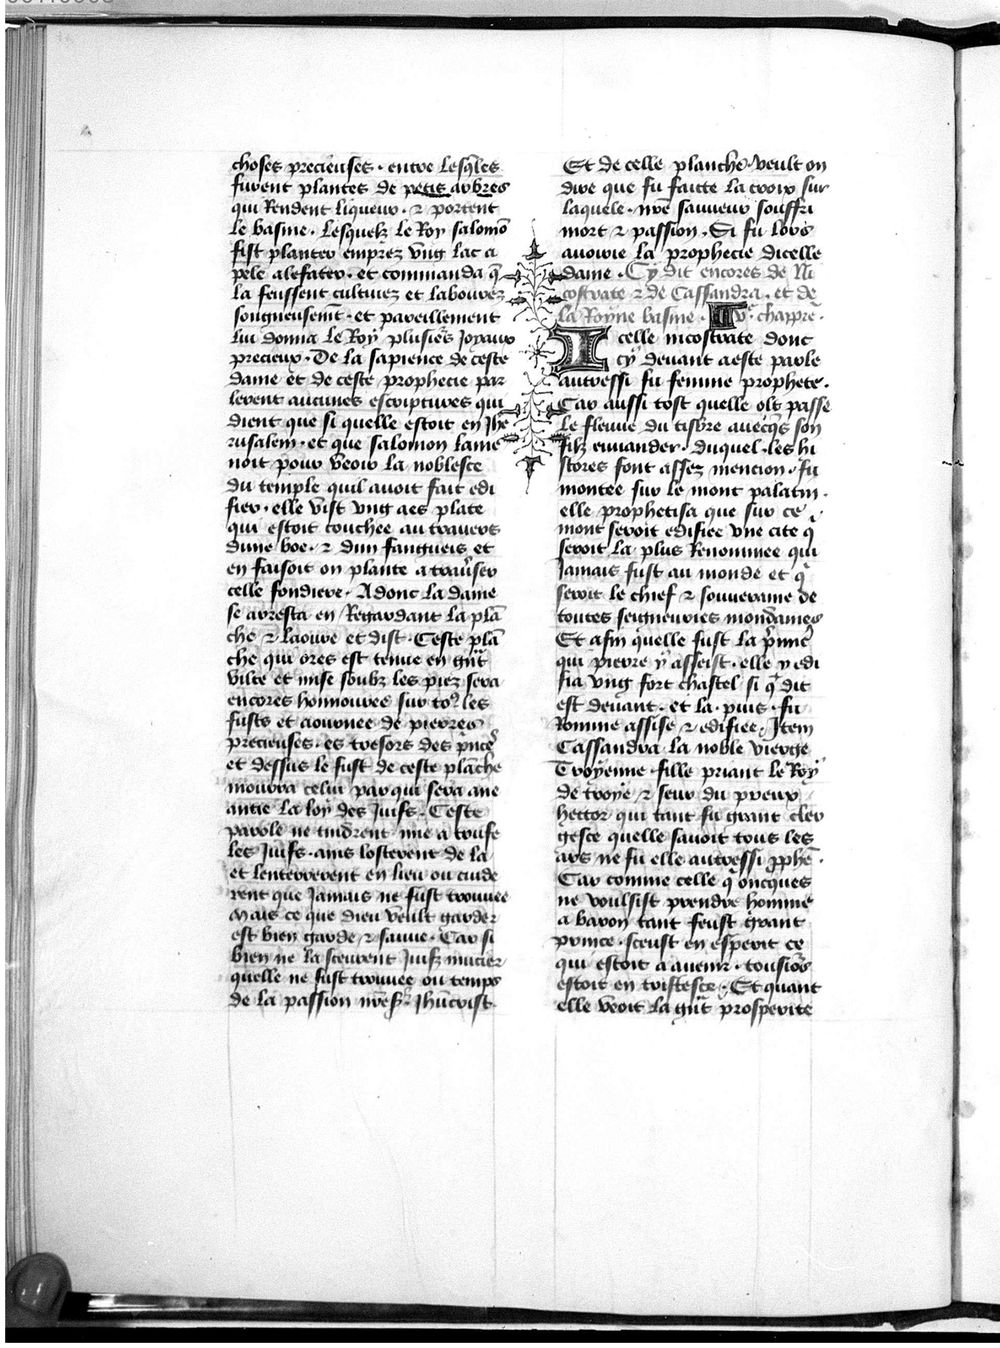 choses precieuses · entre lesq̄les
furent plantes de petis arbres
qui Rendent liqueur · ⁊ portent
le basme · Lesquelz le Roy salomō
fist planter emprez vng lac a
pele alefater · et commanda q̄
la feussent cultiuez et labourez
songneusemt̄ · et pareillement
lui donna le Roy plusieᷣs Joyaux
precieux · De la sapience de ceste
dame et de ceste prophecie par
lerent aucunes escriptures qui
dient que si quelle estoit en Jhe
rusalem · et que salomon lame
noit pour veoir la noblesce
du temple quil auoit fait edi
fier · elle vist vng aes plate
qui estoit couchee au trauers
dune boe · ⁊ dun fangueis et
en faisoit on plante a trauᷣser
celle fondiere · Adonc la dame
se arresta en Regardant la plā
che ⁊ laoure et dist · Ceste plā
che qui ores est tenue en gᷓnt
vilte et mise soubz les piez sera
encores honnouree sur toꝰ les
fusts et aournee de pierres
precieuses · es tresors des p̄nceᷣ
et dessus le fust de ceste plāche
mourra celui par qui sera ane
antie la loy des Juifs · Ceste
parole ne tindrent mie a trufe
les Juifs · ains losterent de la
et lenterrerent en lieu ou cuide
rent que Jamais ne fust trouuee
Mais ce que dieu veult garder
est bien garde ⁊ sauue · Car si
bien ne la sceurent Juifz mucier
quelle ne fust trouuee ou temps
de la passion nrē sʳ Jhūcrist
Et de celle planche · veult on
dire que fu faitte la croix sur
laquele · nrē sauueur souffri
mort ⁊ passion · Si fu lors
auoiue la prophecie dicelle
dame · Cy dit encores de Ni
costrate ⁊ de Cassandra · et de
la Royne basine · v · chappreᷣ ·
Icelle nicostrate donc
cy deuant a ceste parole
autressi fu femme prophete ·
Car aussi tost quelle olt passe
le fleuue du tisbre auecq̄s son
filz euuander · duquel · les hi
stores font assez mencion · fu
montee sur le mont palatin ·
elle prophetisa que sur ce
mont seroit edifiee vne cite q̄
seroit la plus Renommee qui
Jamais fust au monde et q̄
seroit le chief ⁊ souueraine de
toutes seigneuries mondaines
Et afin quelle fust la p̄mieᷣ
qui pierre y asseist · elle y edi
fia vng fort chastel si q̄ dit
est deuant · et la · puis · fu
Romme assise ⁊ edifiee · Item
Cassandra la noble vierge
Troyenne fille priant le Roy
de troye ⁊ seur du preux
hettor qui tant fu grant cler
gesce quelle sauoit tous les
ars ne fu elle autressi ꝓphē ·
Car comme celle q̄ oncques
ne voulsist prendre homme
a baron tant feust grant
prince · sceust en esperit ce
qui estoit a auenir · tousioᷣs
estoit en tristesce · Et quant
elle veoit la gᷓnt prosperite